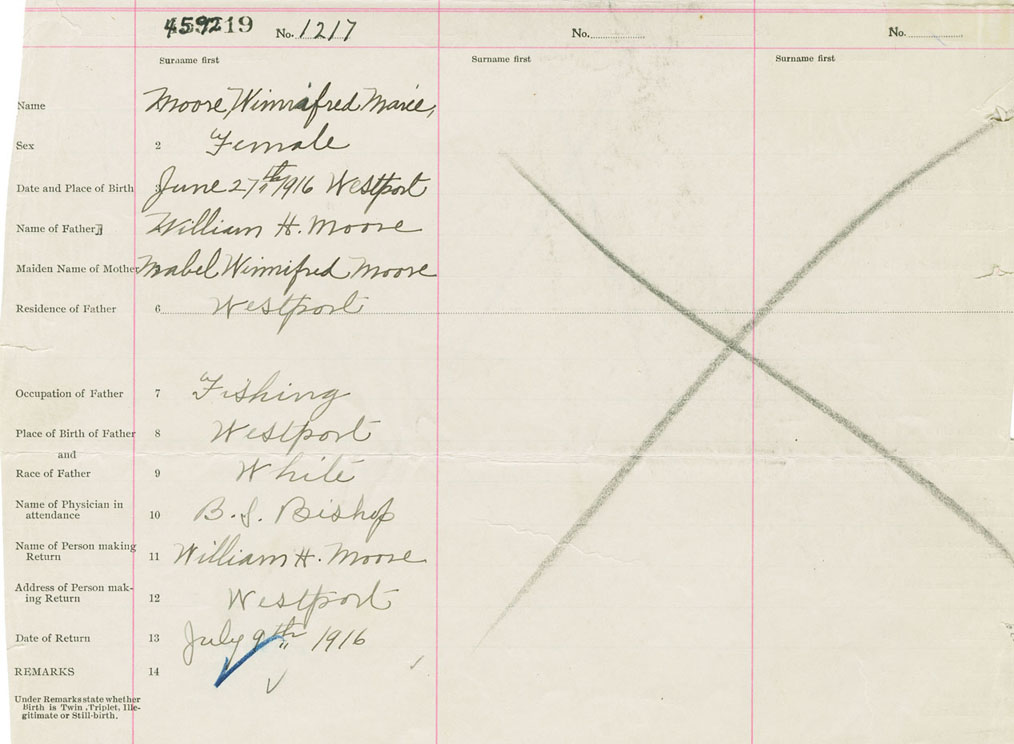 45921９ No. 1217 No. No.
Surname first Surname first Surname first
Name Moore, Winnifred Marie,
Sex 2 Female
Date and Place of Birth 3 June 27th 1916 Westport
Name of Father William H. Moore
Maiden Name of Mother Mabel Winnifred Moore
Residence of Father 6 Westport
Occupation of Father 7 Fishing
Place of Birth of Father 8 Westport
and
Race of Father 9 White
Name of Physician in
attendance 10 B. S. Bishop
Name of Person making
Return 11 William H. Moore
Address of Person mak-
ing Return 12 Westport
Date of Return 13 July 9th 1916
REMARKS 14
Under Remarks state whether
Birth is Twin, Triplet, Ille-
gitimate or Still-birth.